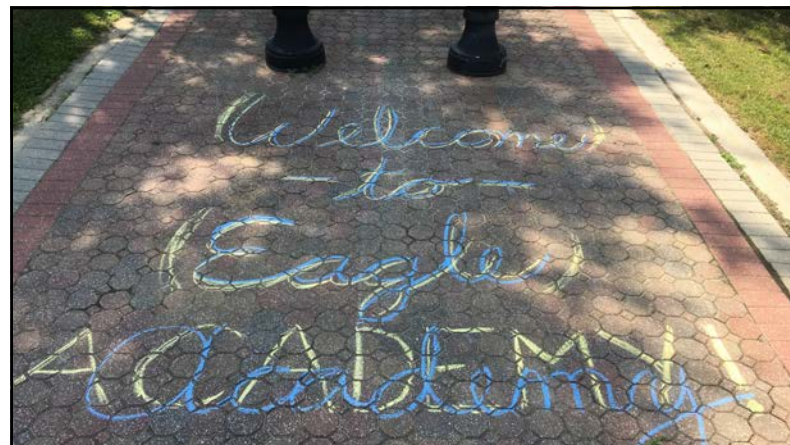 (Welcome)
-to-
(Eagle)
ACADEMY!
Academy